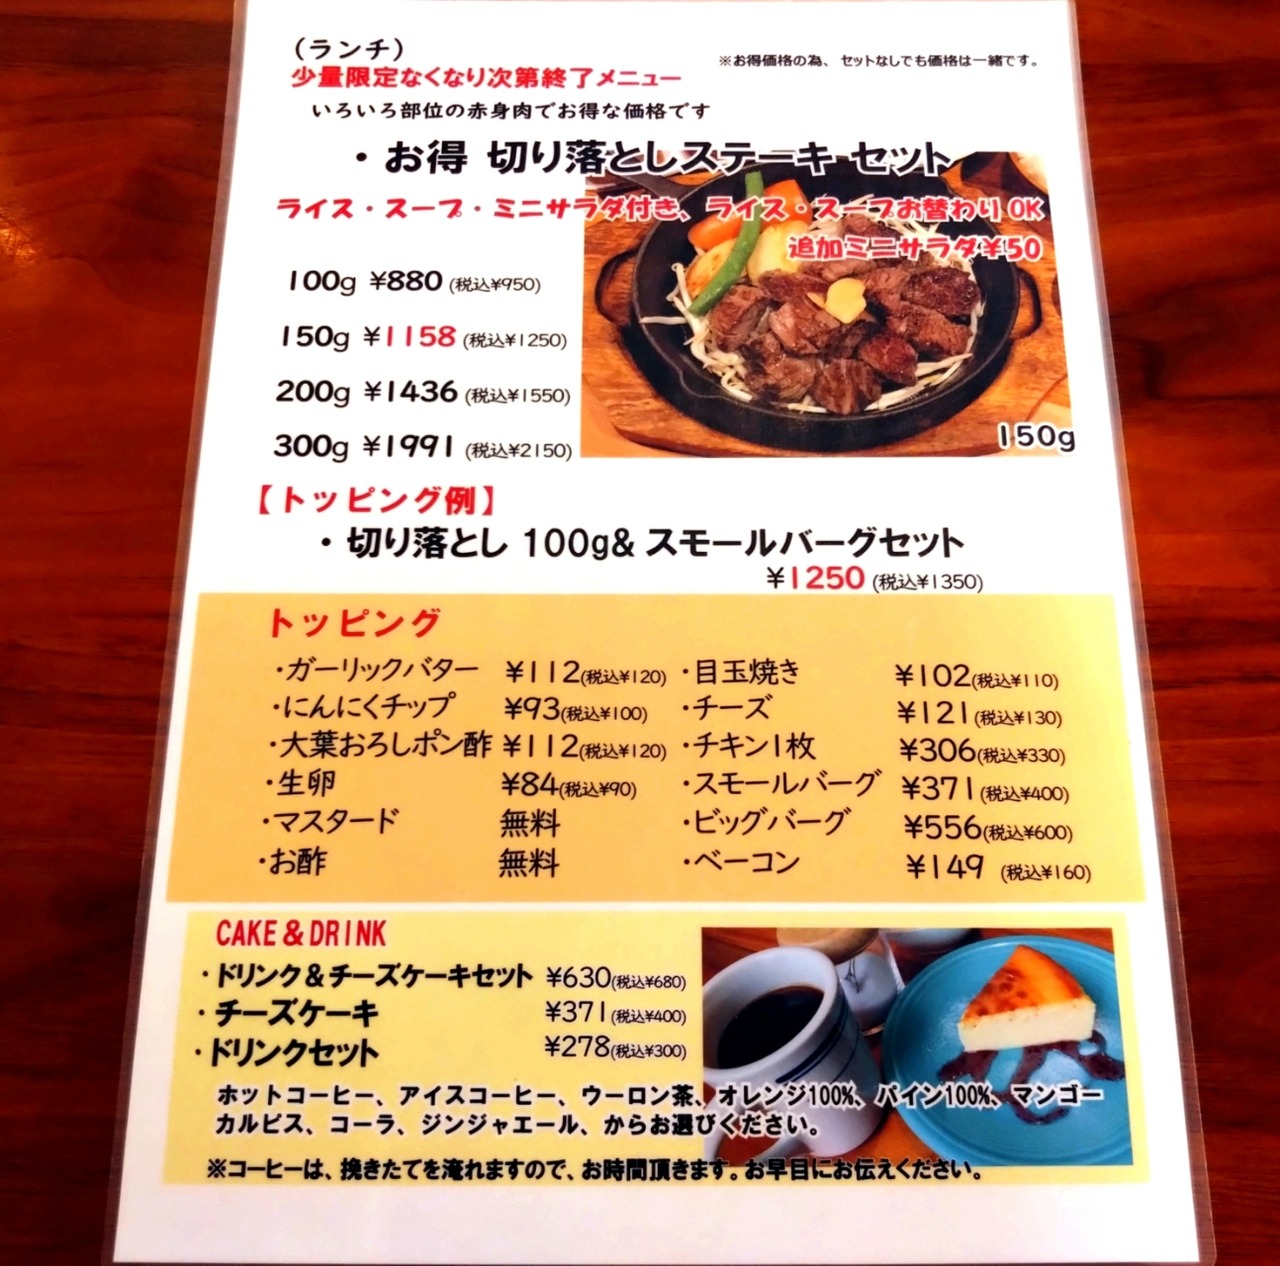 (ランチ)
少量限定なくなり次第終了メニュー
※お得価格の為、セットなしでも価格は一緒です。
いろいろ部位の赤身肉でお得な価格です
・お得 切り落としステーキ セット
ライス・スープ・ミニサラダ付き、ライス・スープお替わりOK
追加ミニサラダ¥50
100g ¥880 (税込¥950)
150g ¥1158 (税込¥1250)
200g ¥1436 (税込¥1550)
300g ¥1991 (税込¥2150)
150g
【トッピング例】
・切り落とし 100g& スモールバーグセット
¥1250 (税込¥1350)
トッピング
・ガーリックバター ¥112(税込¥120) ・目玉焼き ¥102(税込¥110)
・にんにくチップ ¥93(税込¥100) ・チーズ ¥121(税込¥130)
・大葉おろしポン酢 ¥112(税込¥120) ・チキン1枚 ¥306(税込¥330)
・生卵 ¥84(税込¥90) ・スモールバーグ ¥371(税込¥400)
・マスタード 無料 ・ビッグバーグ ¥556(税込¥600)
・お酢 無料 ・ベーコン ¥149 (税込¥160)
CAKE & DRINK
・ドリンク&チーズケーキセット ¥630(税込¥680)
・チーズケーキ ¥371(税込¥400)
・ドリンクセット ¥278(税込¥300)
ホットコーヒー、アイスコーヒー、ウーロン茶、オレンジ100%、パイン100%、マンゴー
カルピス、コーラ、ジンジャエール、からお選びください。
※コーヒーは、挽きたてを淹れますので、お時間頂きます。お早目にお伝えください。